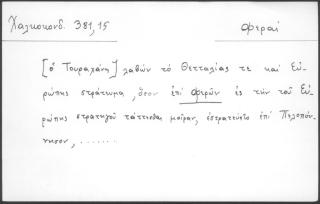 Χαλκοκονδ. 381,15
Φεραί
[ὁ Τουραχάνης] λαβὼν τὸ Θετταλίας τε καὶ Εὐ-
ρώπης στράτευμα, ὅσον ἐπὶ Φερῶν ἐς τὴν τοῦ Εὐ-
ρώπης στρατηγοῦ τάττεσθαι μοῖραν, ἐστρατεύετο ἐπὶ Πελοπόν-
νησον, .......